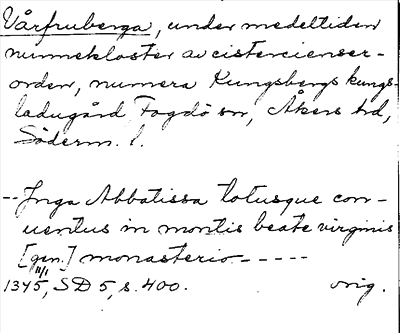 Vårfruberga, under medeltiden
nunnekloster av cistercienser-
orden, numera Kungsbergs kungs-
ladugård, Fogdö sn, Åkers hd,
Söderm. l.
-- Inga Abbatissa totusque con-
uentus in montis beate virginis
[gen.] monasterio - - - - -
11/1
1345, SD 5, s. 400. orig.